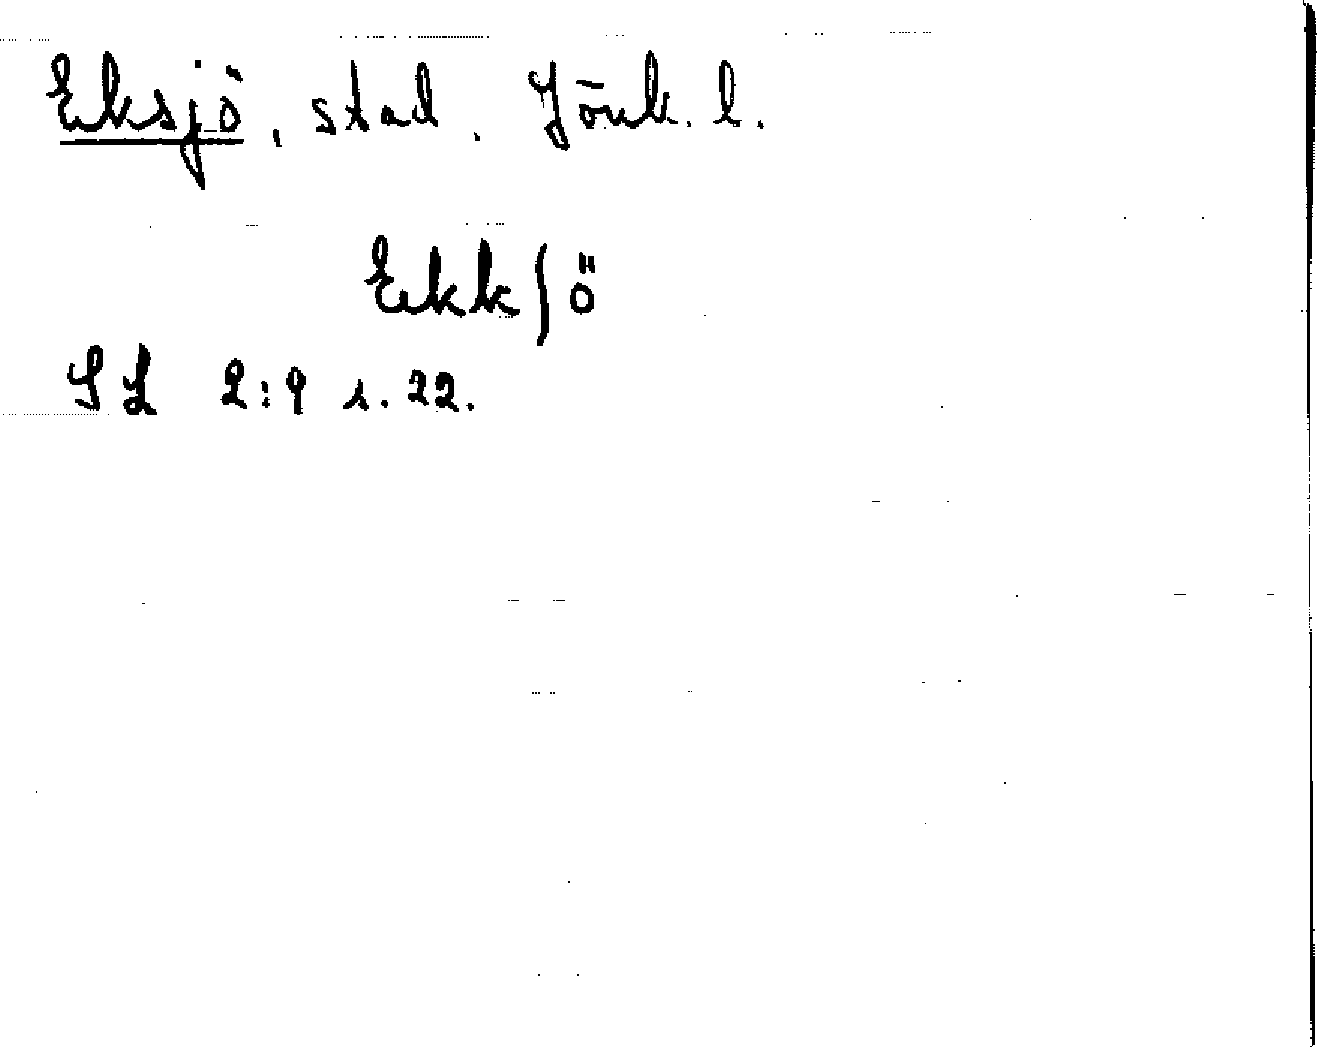 Eksjö, stad. Jönk. l.
Ekkʃö
SL 2:9 s. 22.